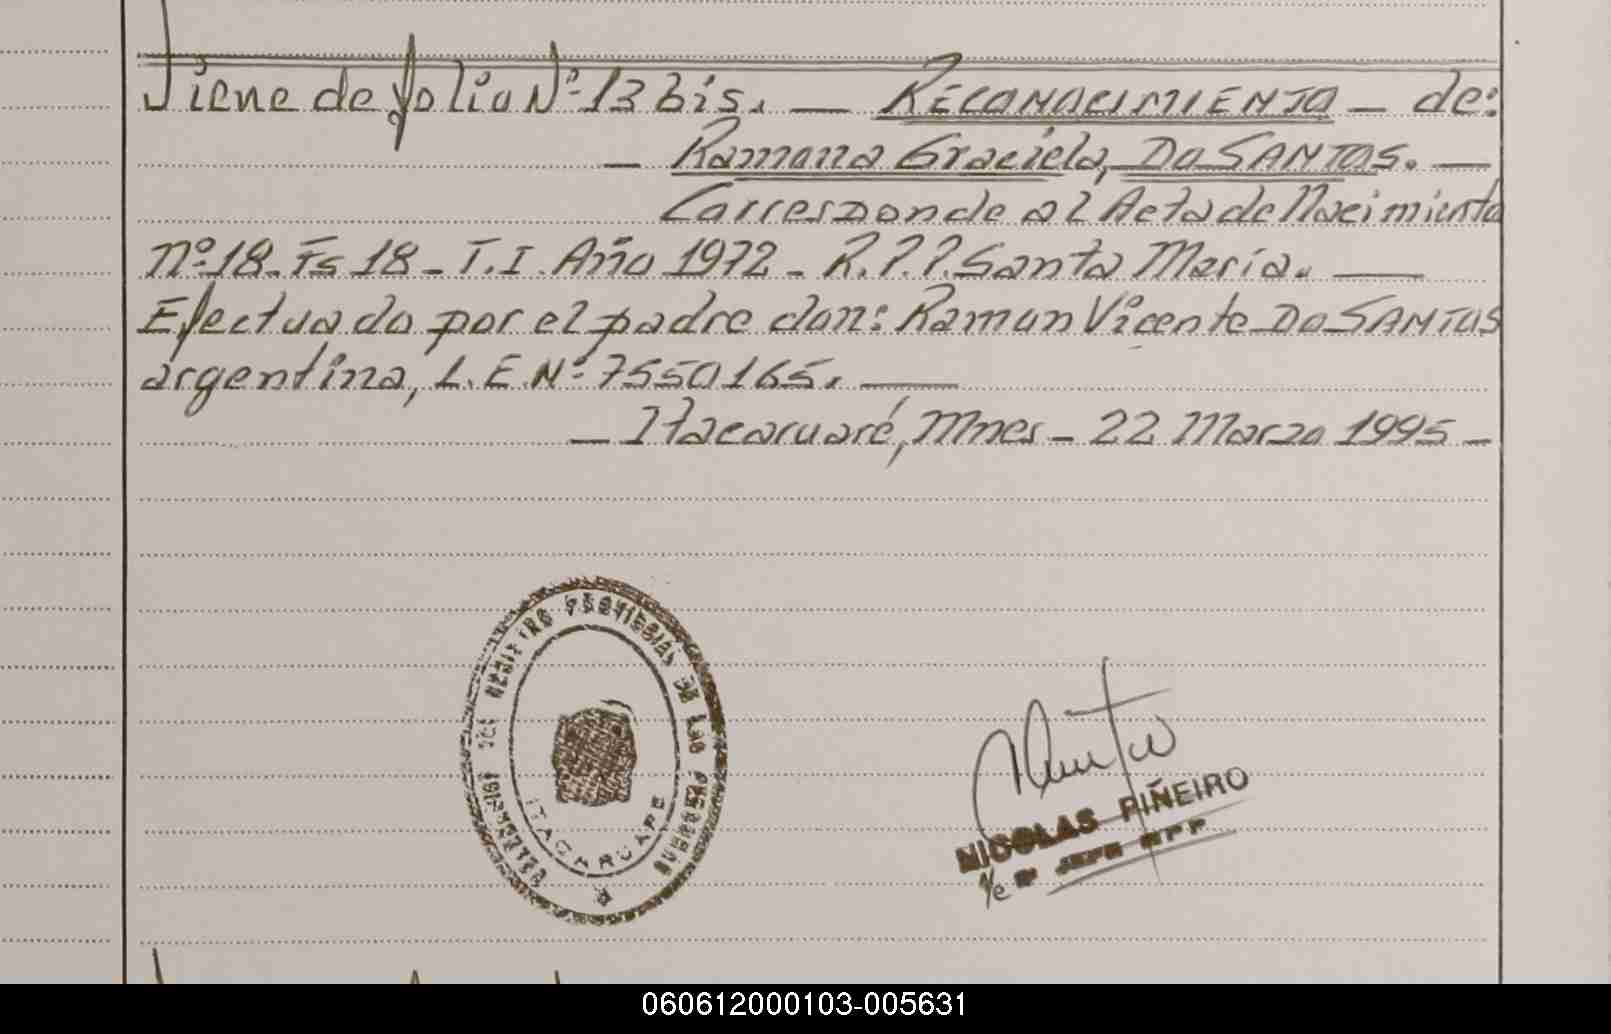 Viene de folio Nº 13 bis. — RECONOCIMIENTO — de:
— Ramona Graciela, DO SANTOS. —
Corresponde al Acta de Nacimiento
Nº 18 - Fs 18 - T. I. Año 1972 - R.P.P. Santa María. —
Efectuado por el padre don: Ramon Vicente DO SANTOS
argentino, L.E. Nº 7550165. —
— Itacaruaré, Mnes - 22 Marzo 1995 -
REGISTRO PROVINCIAL DE LAS PERSONAS
ITACARUARE
NICOLAS PIÑEIRO
JEFE RPP
060612000103-005631